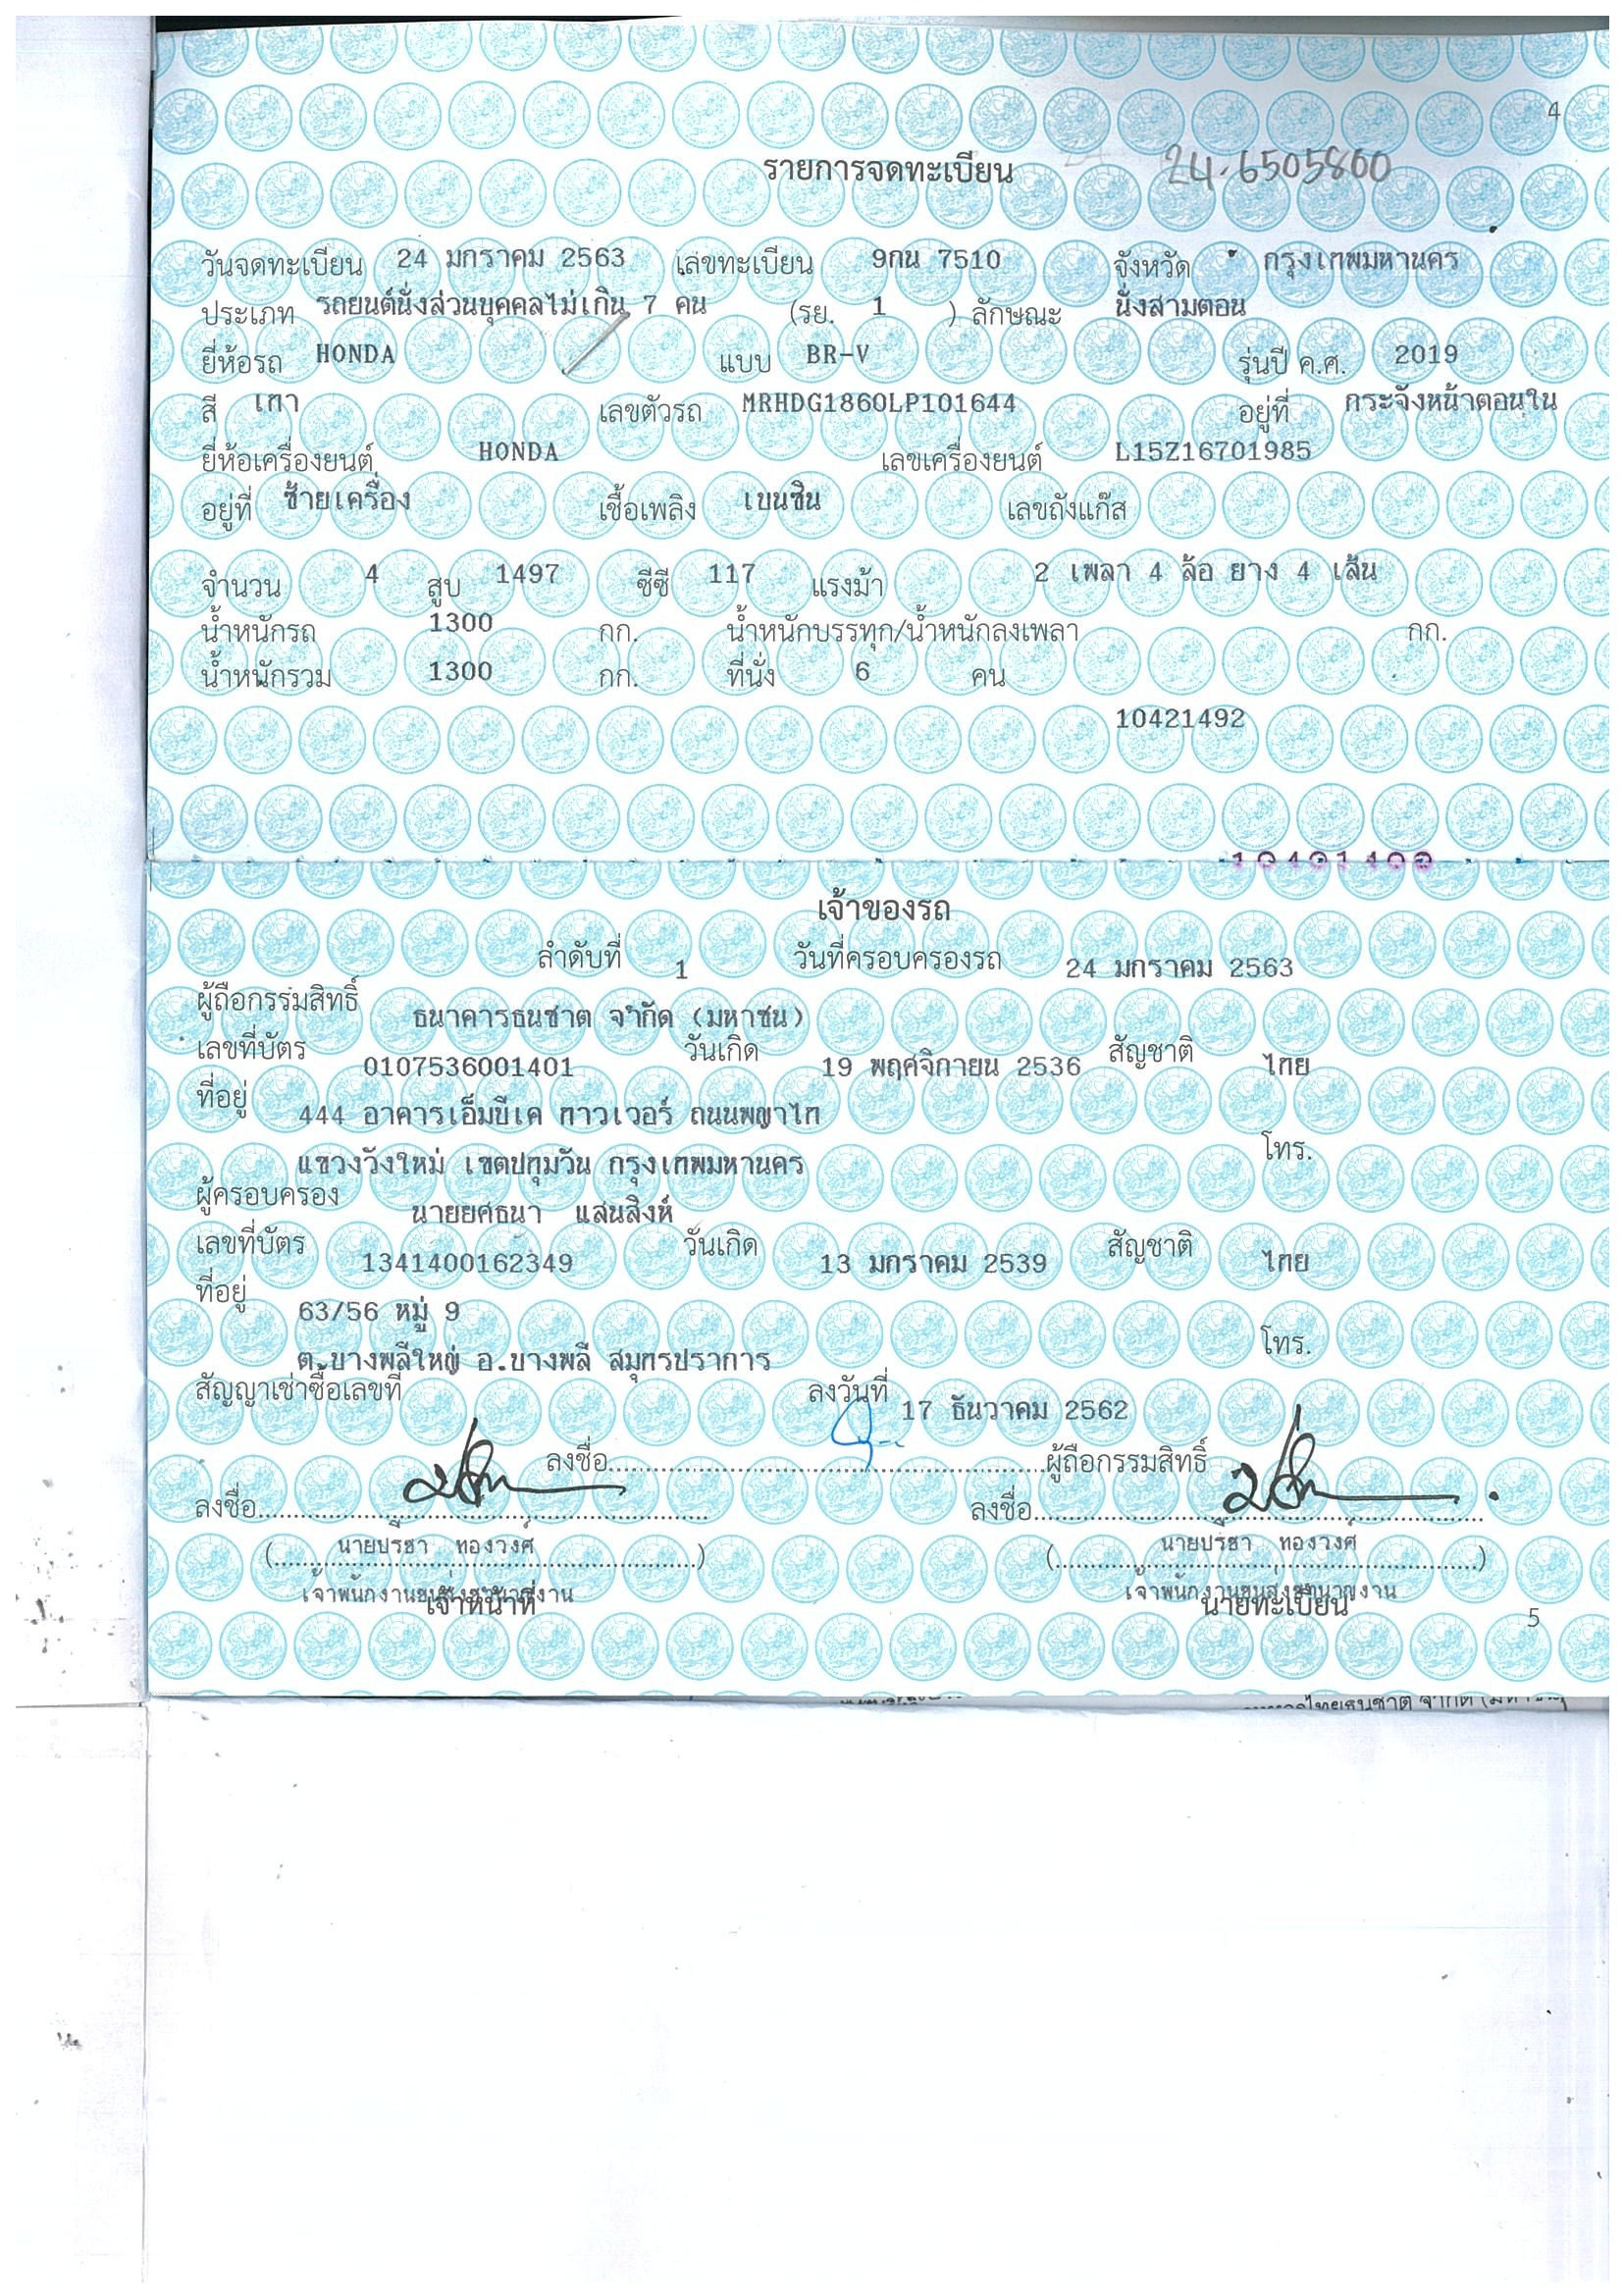 4
รายการจดทะเบียน 24.6505800
วันจดทะเบียน 24 มกราคม 2563 เลขทะเบียน 9กน 7510 จังหวัด กรุงเทพมหานคร
ประเภท รถยนต์นั่งส่วนบุคคลไม่เกิน 7 คน (รย. 1 ) ลักษณะ นั่งสามตอน
ยี่ห้อรถ HONDA แบบ BR-V รุ่นปี ค.ศ. 2019
สี เทา เลขตัวรถ MRHDG1860LP101644 อยู่ที่ กระจังหน้าตอนใน
ยี่ห้อเครื่องยนต์ HONDA เลขเครื่องยนต์ L15Z16701985
อยู่ที่ ซ้ายเครื่อง เชื้อเพลิง เบนซิน เลขถังแก๊ส
จำนวน 4 สูบ 1497 ซีซี 117 แรงม้า 2 เพลา 4 ล้อ ยาง 4 เส้น
น้ำหนักรถ 1300 กก. น้ำหนักบรรทุก/น้ำหนักลงเพลา กก.
น้ำหนักรวม 1300 กก. ที่นั่ง 6 คน
10421492
เจ้าของรถ
ลำดับที่ 1 วันที่ครอบครองรถ 24 มกราคม 2563
ผู้ถือกรรมสิทธิ์ ธนาคารธนชาต จำกัด (มหาชน)
เลขที่บัตร 0107536001401 วันเกิด 19 พฤศจิกายน 2536 สัญชาติ ไทย
ที่อยู่ 444 อาคารเอ็มบีเค ทาวเวอร์ ถนนพญาไท
แขวงวังใหม่ เขตปทุมวัน กรุงเทพมหานคร โทร.
ผู้ครอบครอง นายยศธนา แสนสิงห์
เลขที่บัตร 1341400162349 วันเกิด 13 มกราคม 2539 สัญชาติ ไทย
ที่อยู่ 63/56 หมู่ 9
ต.บางพลีใหญ่ อ.บางพลี สมุทรปราการ โทร.
สัญญาเช่าซื้อเลขที่ ลงวันที่ 17 ธันวาคม 2562
ลงชื่อ ผู้ถือกรรมสิทธิ์
ลงชื่อ ลงชื่อ
(นายปรีชา ทองวงศ์) (นายปรีชา ทองวงศ์)
เจ้าพนักงานขนส่งชำนาญงาน เจ้าพนักงานขนส่งชำนาญงาน
เจ้าหน้าที่ นายทะเบียน
5